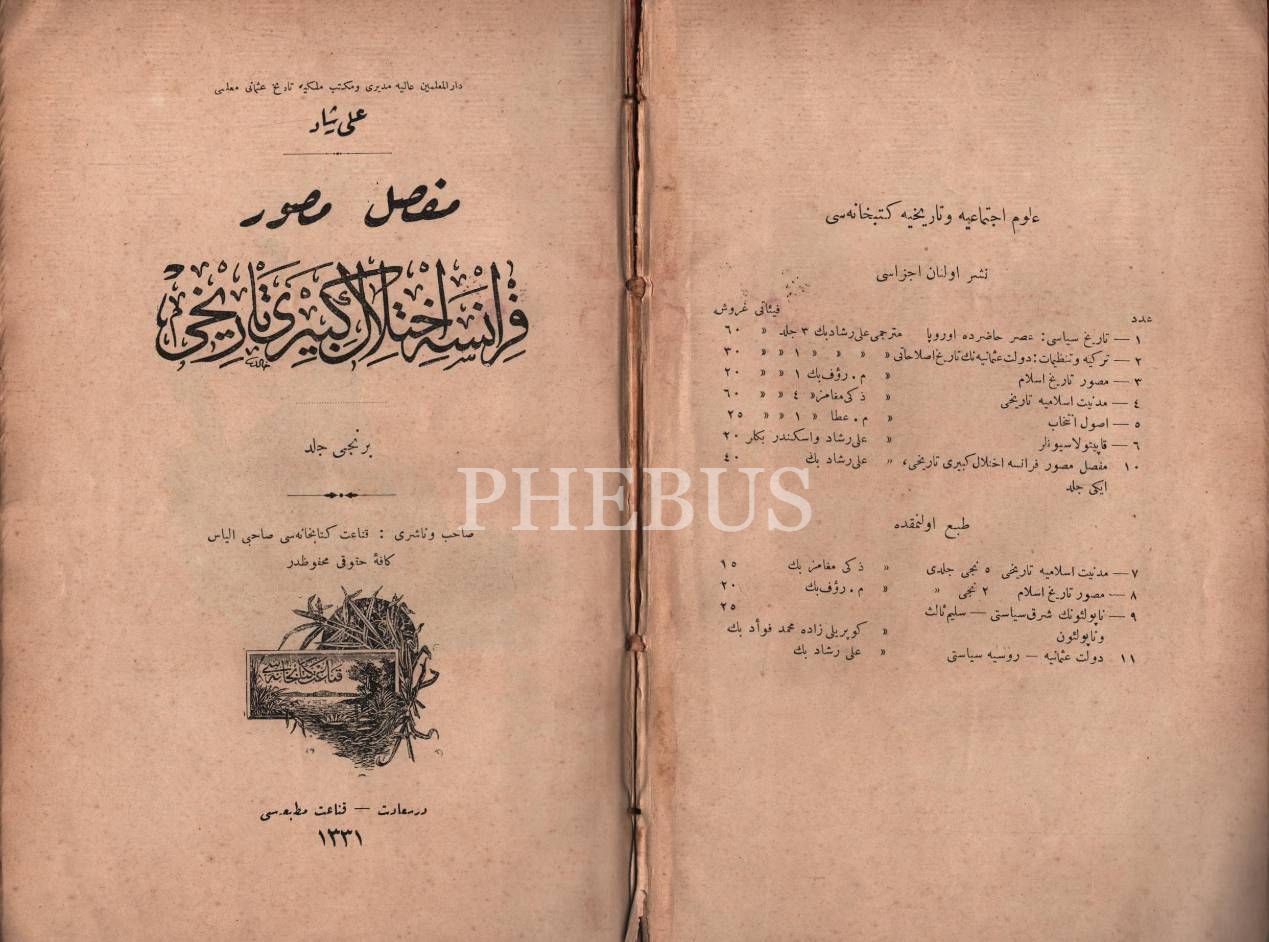 علوم اجتماعیه و تاریخیه کتبخانه‌سی
نشر اولنان اجزاسی
عدد فیئاتی غروش
۱ — تاریخ سیاسی: عصر حاضرده اوروپا مترجمی علی رشاد بك ۳ جلد » ٦٠
۲ — ترکیه و تنظیمات: دولت عثمانیه‌نك تاریخ اصلاحاتی » » » ۱ » » ۳۰
۳ — مصور تاریخ اسلام » م . رؤف بك ۱ » » ۲۰
٤ — مدنیت اسلامیه تاریخی » ذکی مغامز » ٤ » » ٦٠
٥ — اصول انتخاب » م . عطا » ۱ » » ۲٥
٦ — قاپیتولاسیونلر » علی رشاد و اسکندر بکلر ۲۰
۱۰ مفصل مصور فرانسه اختلال کبیری تاریخی، » علی رشاد بك ٤٠
ایکی جلد
طبع اولنمقده
۷ — مدنیت اسلامیه تاریخی ٥ نجی جلدی » ذکی مغامز بك ۱٥
۸ — مصور تاریخ اسلام ۲ نجی » » م . رؤف بك ۲۰
۹ — ناپولئونك شرق سیاستی — سلیم ثالث ۲٥
و ناپولئون » کوپریلی زاده محمد فوأد بك
۱۱ دولت عثمانیه — روسیه سیاستی » علی رشاد بك
دارالمعلمین عالیه مدیری و مکتب ملکیه تاریخ عثمانی معلمی
علی رشاد
مفصل مصور
فرانسه اختلال کبیری تاریخی
برنجی جلد
صاحب و ناشری : قناعت کتابخانه‌سی صاحبی الیاس
کافهٔ حقوقی محفوظدر
قناعت کتابخانه‌سی
درسعادت — قناعت مطبعه‌سی
۱۳۳۱
PHEBUS